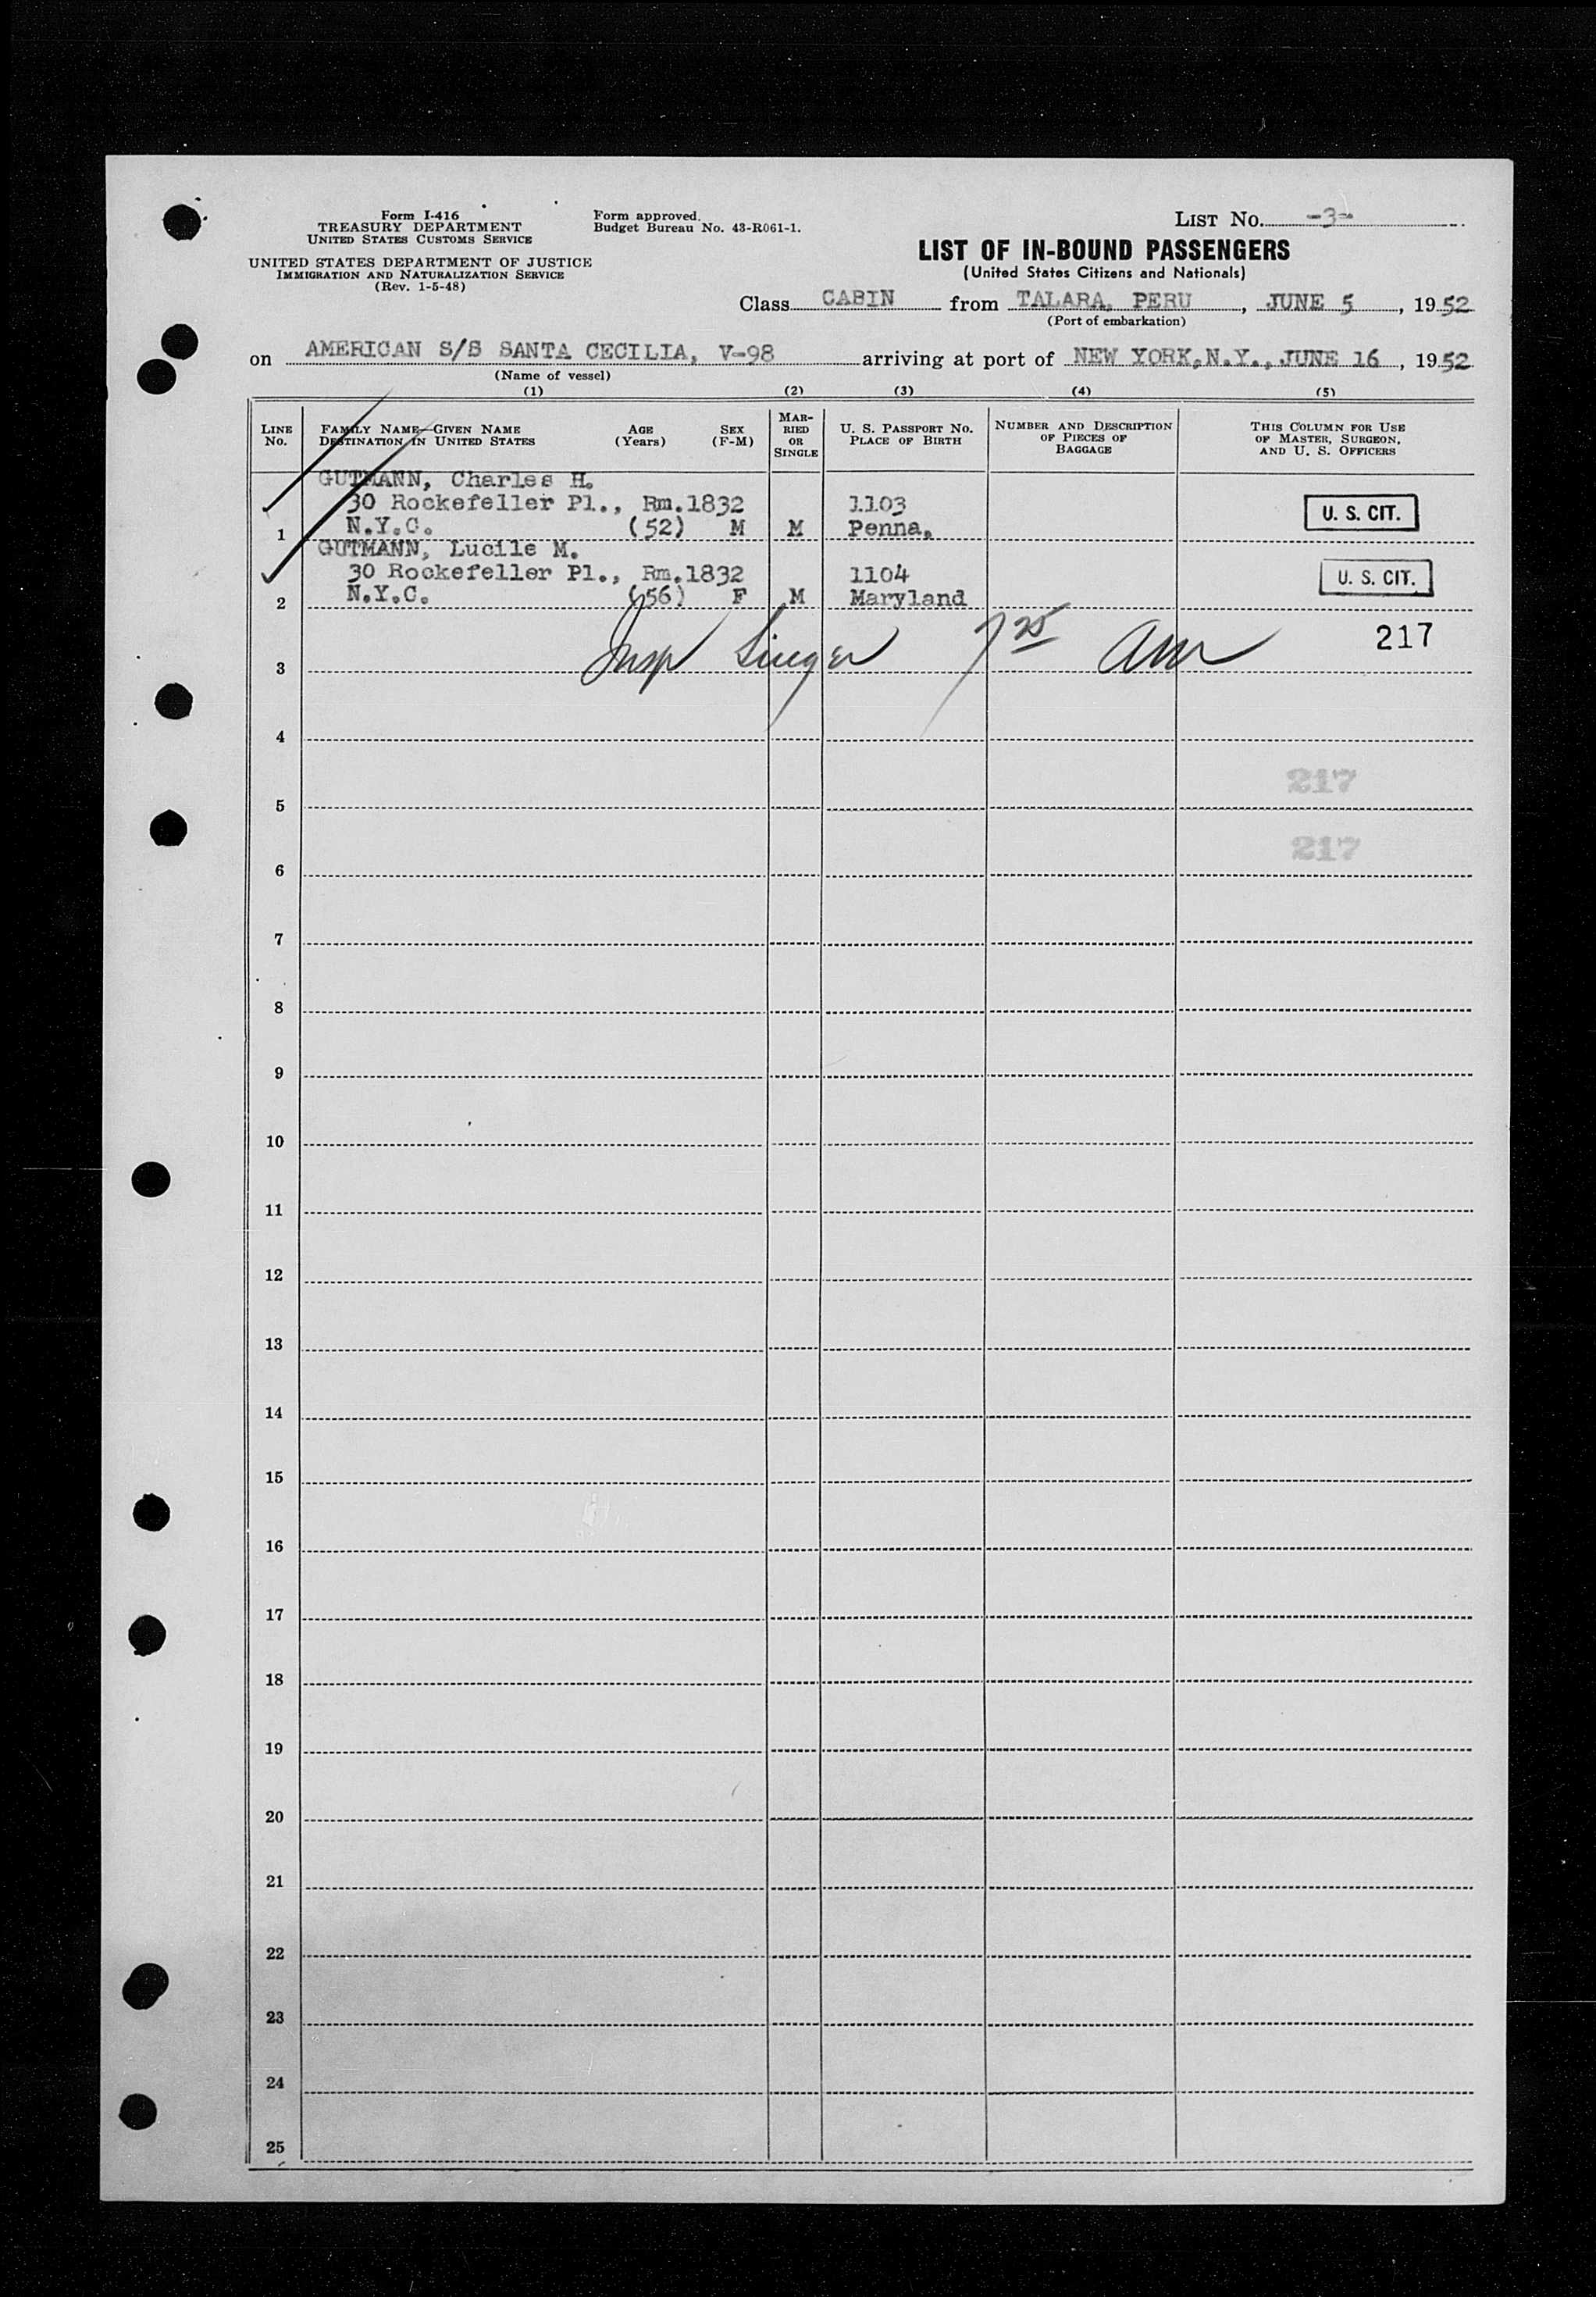 Form I-416
TREASURY DEPARTMENT
UNITED STATES CUSTOMS SERVICE
UNITED STATES DEPARTMENT OF JUSTICE
IMMIGRATION AND NATURALIZATION SERVICE
(Rev. 1-5-48)
Form approved.
Budget Bureau No. 43-R061-1.
LIST NO. -3-
LIST OF IN-BOUND PASSENGERS
(United States Citizens and Nationals)
Class CABIN from TALARA, PERU, JUNE 5, 1952
(Port of embarkation)
on AMERICAN S/S SANTA CECILIA, V-98 arriving at port of NEW YORK, N.Y., JUNE 16, 1952
(Name of vessel)
(1) (2) (3) (4) (5)
LINE NO.
FAMILY NAME—GIVEN NAME
DESTINATION IN UNITED STATES
AGE (Years)
SEX (F-M)
MARRIED OR SINGLE
U. S. PASSPORT NO.
PLACE OF BIRTH
NUMBER AND DESCRIPTION OF PIECES OF BAGGAGE
THIS COLUMN FOR USE OF MASTER, SURGEON, AND U. S. OFFICERS
GUTMANN, Charles H.
30 Rockefeller Pl., Rm.1832 1103 U. S. CIT.
1 N.Y.C. (52) M M Penna.
GUTMANN, Lucile M.
30 Rockefeller Pl., Rm.1832 1104 U. S. CIT.
2 N.Y.C. (56) F M Maryland
217
3 Insp Singer 7 25 am
4
217
5
217
6
7
8
9
10
11
12
13
14
15
16
17
18
19
20
21
22
23
24
25